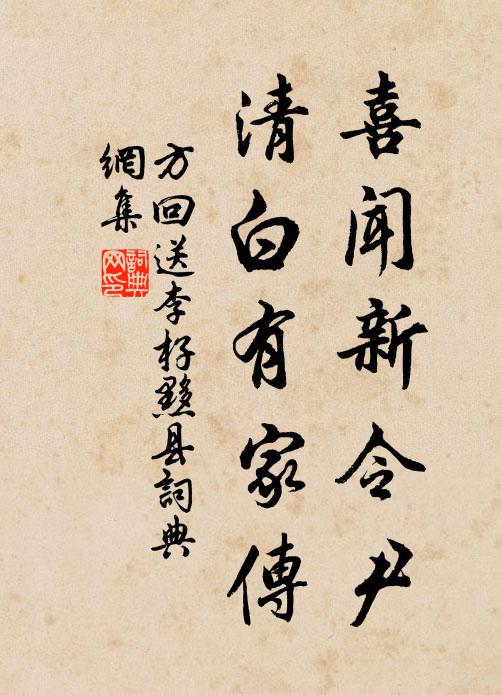 喜闻新令尹
清白有家傳
方回送李杍黟县詞典
網集
詞典网印